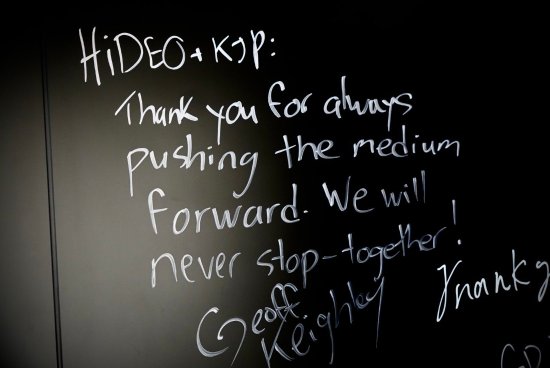 HiDEO + KJP:
Thank you for always
pushing the medium
forward. We will
never stop-together!
Geoff
Keighley